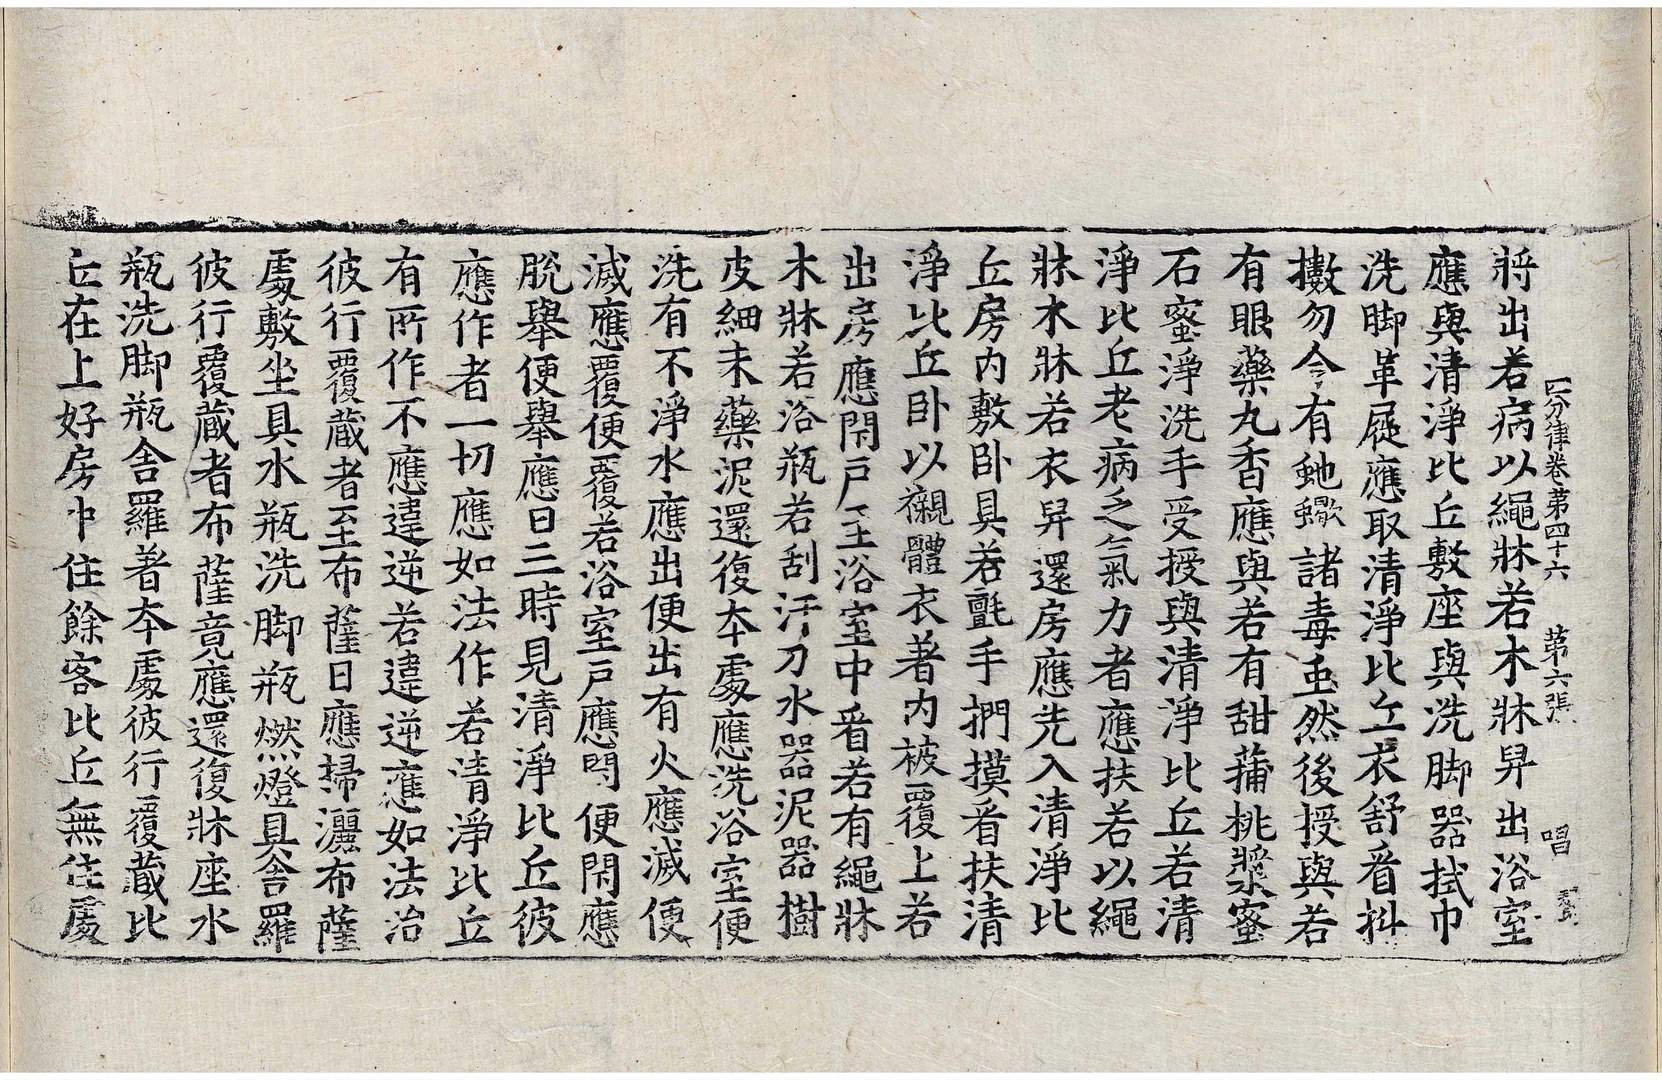 四分律卷第四十六 第六張 唱
將出若病以繩牀若木牀舁出浴室
應與清淨比丘敷座與洗脚器拭巾
洗脚革屣應取清淨比丘衣舒看抖
擻勿令有虵蠍諸毒虫然後授與若
有眼藥丸香應與若有甜蒲桃漿蜜
石蜜淨洗手受授與清淨比丘若清
淨比丘老病乏氣力者應扶若以繩
牀木牀若衣舁還房應先入清淨比
丘房內敷卧具若氈手捫摸看扶清
淨比丘卧以襯體衣著內被覆上若
出房應閇戶至浴室中看若有繩牀
木牀若浴瓶若刮汗刀水器泥器樹
皮細末藥泥還復本處應洗浴室便
洗有不淨水應出便出有火應滅便
滅應覆便覆若浴室戶應閇便閇應
脫舉便舉應日三時見清淨比丘彼
應作者一切應如法作若清淨比丘
有所作不應違逆若違逆應如法治
彼行覆藏者至布薩日應掃灑布薩
處敷坐具水瓶洗脚瓶燃燈具舍羅
彼行覆藏者布薩竟應還復牀座水
瓶洗脚瓶舍羅著本處彼行覆藏比
丘在上好房中住餘客比丘無住處